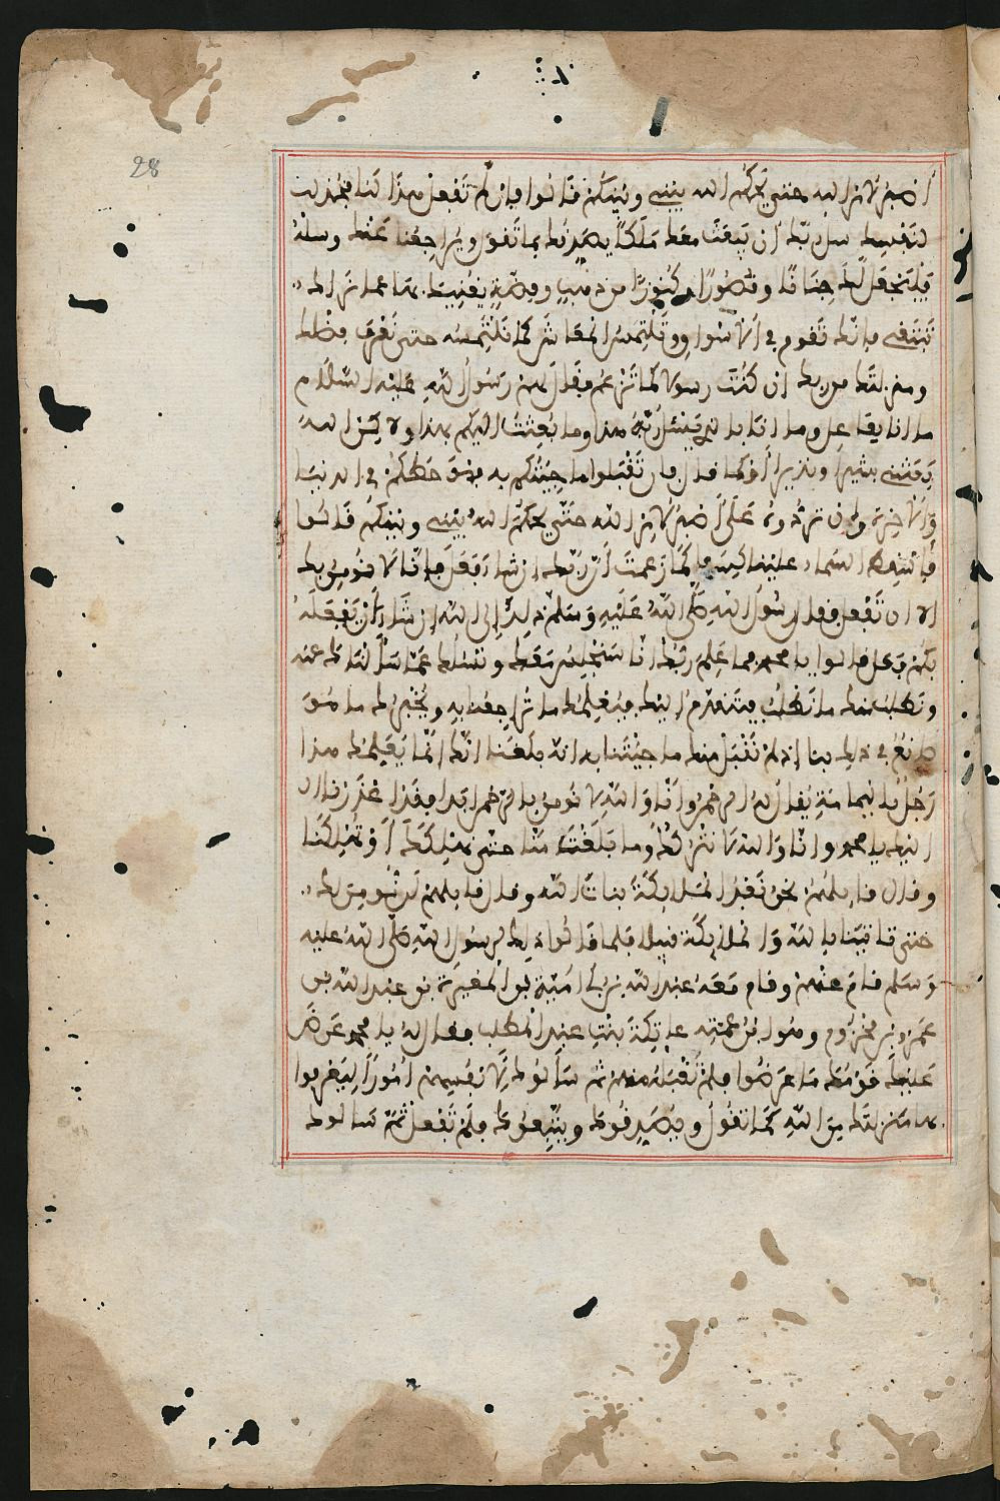 28
أصبر لأمر الله حتى يحكم الله بيني وبينكم قالوا فإن لم تفعل هذا لنا فخذ
لنفسك سل ربك أن يبعث معك ملكا يصدقك بما تقول ويراجعنا عنك وسله
فليجعل لك جنانا وقصورا وكنوزا من ذهب وفضة يغنيك بها عما نراك
تبتغي فإنك تقوم في الأسواق وتلتمس المعاش كما نلتمسه حتى نعرف فضلك
ومنزلتك من ربك إن كنت رسولا كما تزعم فقال لهم رسول الله عليه السلام
ما أنا بفاعل وما أنا بالذي يسئل ربه هذا وما بعثت إليكم بهذا ولا كن الله
بعثني بشيرا ونذيرا أو كما قال فإن تقبلوا ما جئتكم به فهو حظكم في الدنيا
والآخرة وإن تردوه علي أصبر لأمر الله حتى يحكم الله بيني وبينكم قالوا
فأسقط السماء علينا كسفا كما زعمت أن ربك إن شاء فعل فإنا لا نؤمن بك
إلا أن تفعل فقال رسول الله صلى الله عليه وسلم ذلك إلى الله إن شاء أن يفعله
بكم فعل قالوا يا محمد فما علم ربك أنا سنجلس معك ونسئلك عما سألناك عنه
ونطلب منك ما نطلب فيتقدم إليك فيعلمك ما تراجعنا به ويخبرك ما هو
صانع في ذلك بنا إذ لم نقبل منك ما جئتنا به إنه بلغنا أنك إنما يعلمك هذا
رجل باليمامة يقال له الرحمن وإنا والله لا نؤمن بالرحمن أبدا فقد اعذرنا
إليك يا محمد وإنا والله لا نتركك وما بلغت منا حتى نهلكك أو تهلكنا
وقال قائلهم نحن نعبد الملائكة بنات الله وقال قائلهم لن نؤمن لك
حتى تأتينا بالله والملائكة قبيلا فلما قالوا ذلك لرسول الله صلى الله عليه
وسلم قام عنهم وقام معه عبد الله بن أبي أمية بن المغيرة بن عبد الله بن
عمر بن مخزوم وهو ابن عمته عاتكة بنت عبد المطلب فقال له يا محمد عرض
عليك قومك ما عرضوا فلم تقبله منهم ثم سألوك لأنفسهم أمورا ليعرفوا
بها منزلتك من الله كما تقول ويصدقوك ويتبعوك فلم تفعل ثم سألوك